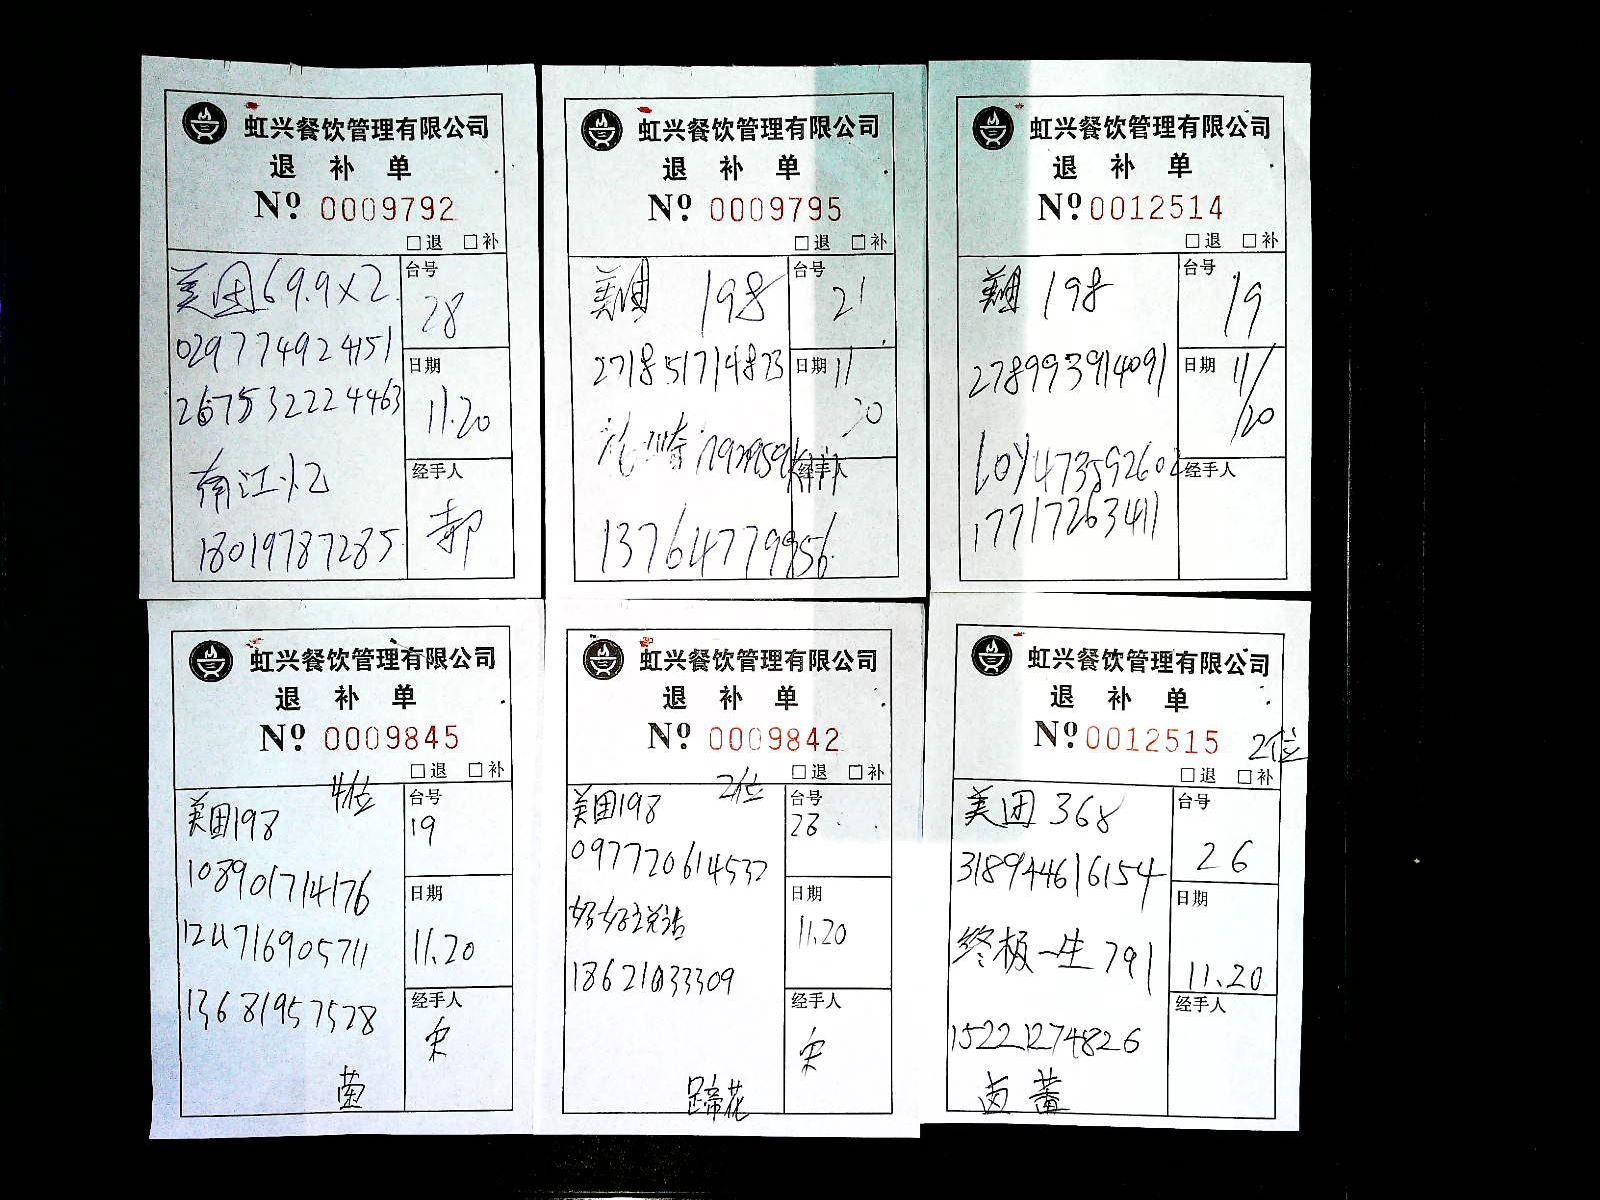 虹兴餐饮管理有限公司
退 补 单
Nº 0009792
□退 □补
美团69.9×2
029774924151
267532224463
南江忆
18019787285
台号
28
日期
11.20
经手人
郝
虹兴餐饮管理有限公司
退 补 单
Nº 0009795
□退 □补
美团 198
271851714873
13764779956
台号
21
日期
11
20
经手人
虹兴餐饮管理有限公司
退 补 单
Nº 0012514
□退 □补
美团 198
278993914091
17717263411
台号
19
日期
11/
/20
经手人
虹兴餐饮管理有限公司
退 补 单
Nº 0009845
□退 □补
4位
美团198
108901714176
124716905711
13681957528
菌
台号
19
日期
11.20
经手人
宋
虹兴餐饮管理有限公司
退 补 单
Nº 0009842
□退 □补
2位
美团198
097720614532
好好说话
18621033309
蹄花
台号
28
日期
11.20
经手人
宋
虹兴餐饮管理有限公司
退 补 单
Nº 0012515
2位
□退 □补
美团 368
318944616154
终极一生 791
15221274826
台号
26
日期
11.20
经手人